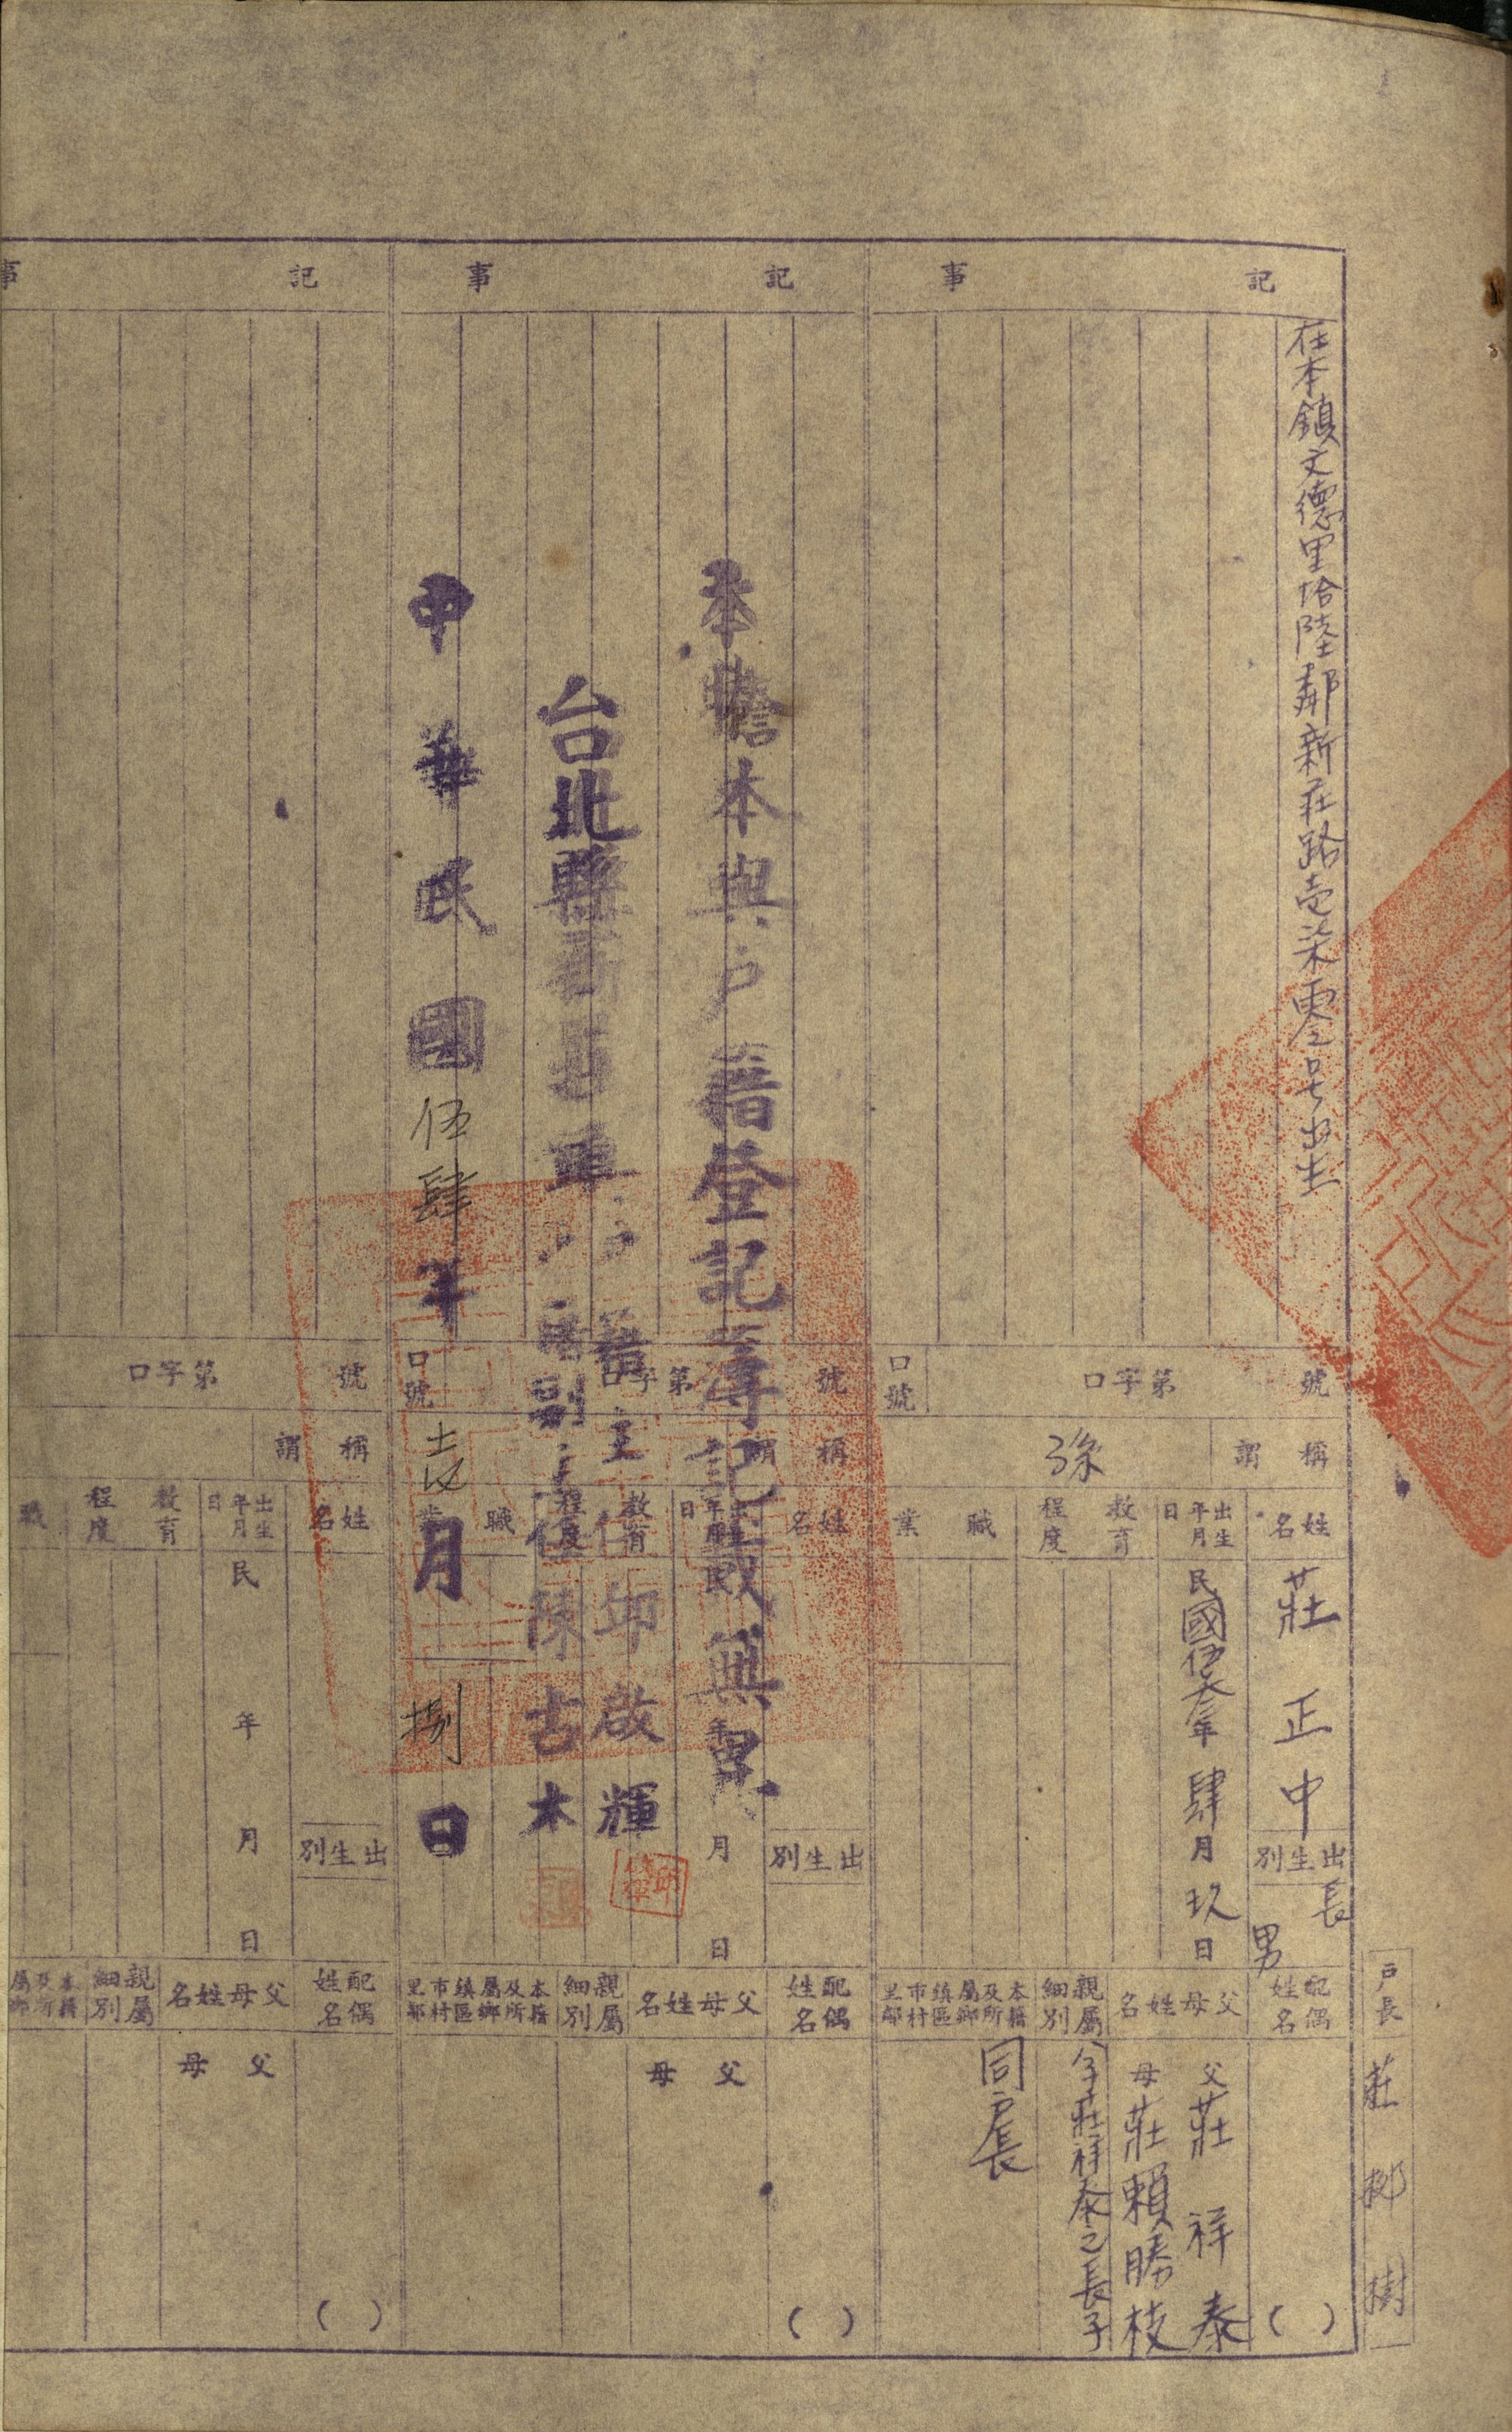 戶長 莊 樹
記事
在本鎮文德里拾陸鄰新莊路壱柒零号出生
號
口字第
口號
稱謂
孫
姓名
莊正中
出生別
長男
出生年月日
民國伍叁年肆月玖日
教育程度
職業
配偶姓名
( )
父母姓名
父 莊祥泰
母 莊賴勝枝
親屬細別
子莊祥泰之長子
本籍及所屬鄉鎮區市村里鄰
同戶長
記事
號
口字第
口號
稱謂
姓名
出生別
出生年月日
民 年 月 日
教育程度
職業
配偶姓名
( )
父母姓名
父
母
親屬細別
本籍及所屬鄉鎮區市村里鄰
本謄本與戶籍登記簿記載無異
台北縣新莊鎮戶籍主任 邱啟輝
戶籍副主任 陳古木
中華民國伍肆年 月捌日
記事
號
口字第
稱謂
姓名
出生別
出生年月日
民 年 月 日
教育程度
職
配偶姓名
( )
父母姓名
父
母
親屬細別
本籍及所屬鄉